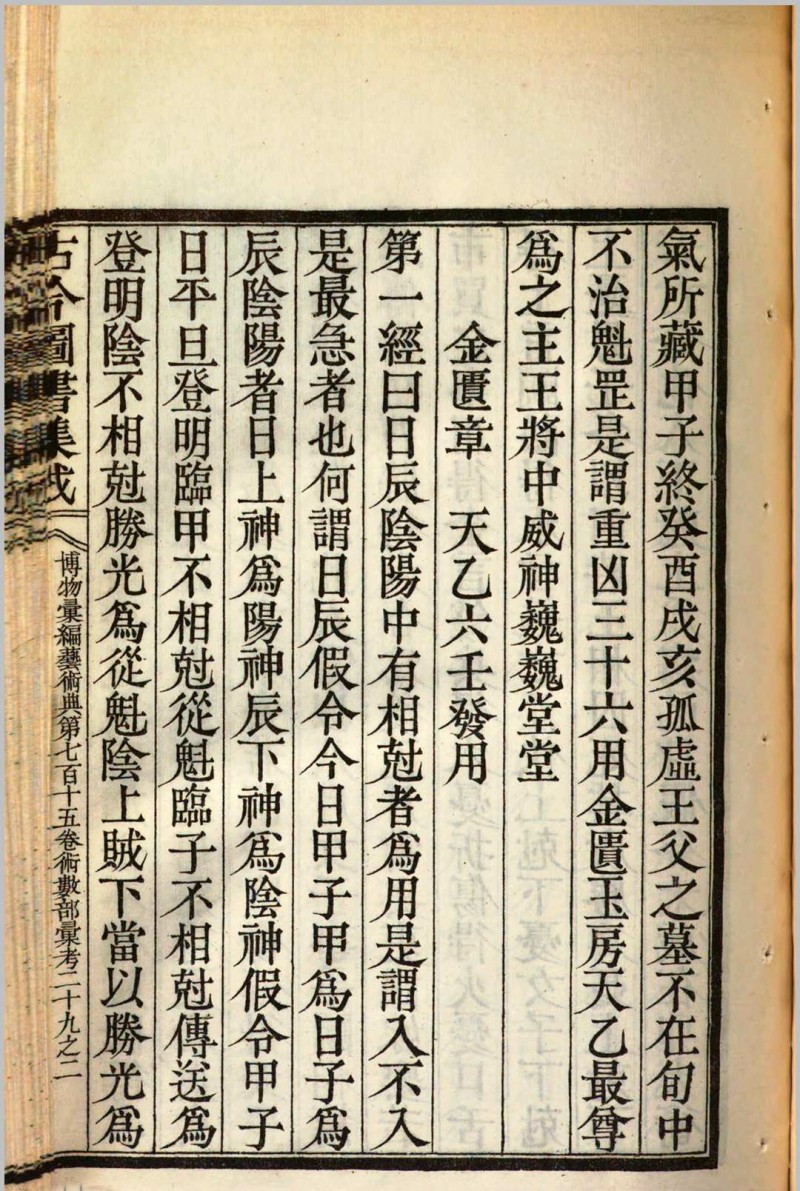 氣所藏甲子終癸酉戌亥孤虛王父之墓不在旬中
不治魁罡是謂重凶三十六用金匱玉房天乙最尊
爲之主王將中威神巍巍堂堂
金匱章　天乙六壬發用
第一經曰日辰陰陽中有相尅者爲用是謂入不入
是最急者也何謂日辰假令今日甲子甲爲日子爲
辰陰陽者日上神爲陽神辰下神爲陰神假令甲子
日平旦登明臨甲不相尅從魁臨子不相尅傳送爲
登明陰不相尅勝光爲從魁陰上賊下當以勝光爲
古今圖書集成
博物彙編藝術典第七百十五卷術數部彙考二十九之二